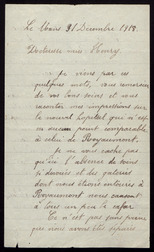 Le Mans 31 Décembre 1918
Docteur miss Henry,
Je viens par ces
quelques mots, vous remercier
de vos bons soins et vous
raconter mes impressions sur
le nouvel hôpital que n'est
en aucun point comparable
à celui de Royaumont.
Je ne vous cache pas
qu'ici l'absence de soins
si dévoués et des gaietés
dont nous étions entourés à
Royaumont nous causent
à tous un peu de cafard.
Ce n'est pas sans peine
que nous avons été séparés